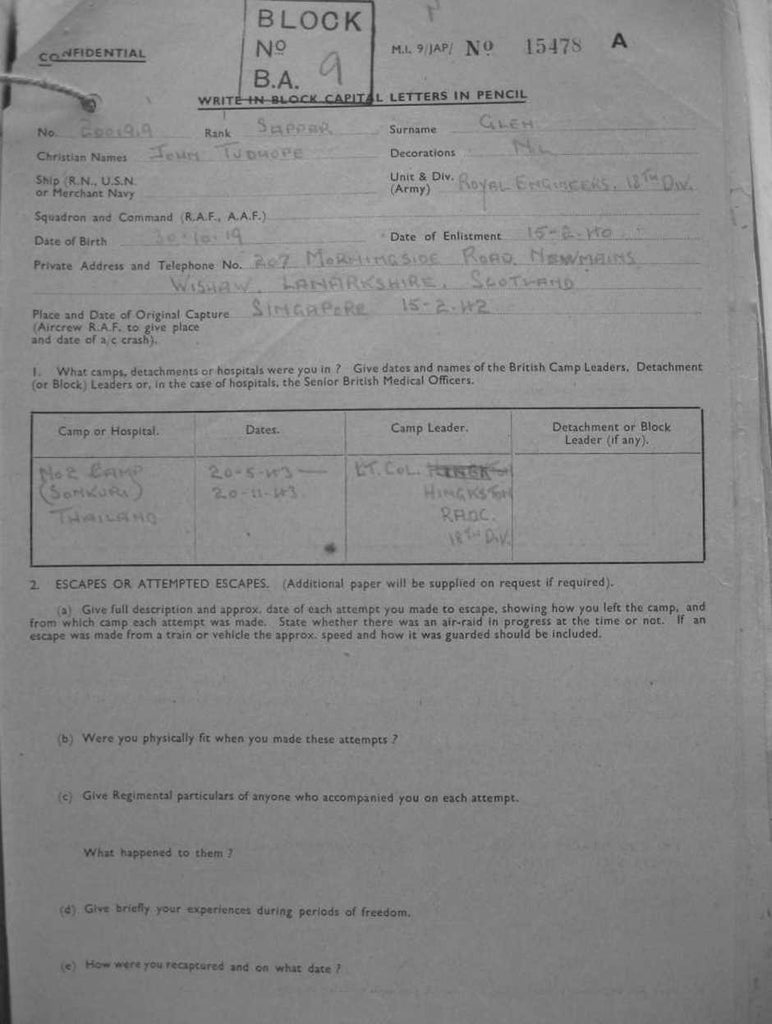 BLOCK
CONFIDENTIAL Nº M.I. 9/JAP/ Nº 15478 A
B.A. 9
WRITE IN BLOCK CAPITAL LETTERS IN PENCIL
No. Rank SAPPER Surname GLEN
Christian Names JOHN TUDHOPE Decorations NIL
Ship (R.N., U.S.N. or Merchant Navy Unit & Div. (Army) ROYAL ENGINEERS. 18TH DIV.
Squadron and Command (R.A.F., A.A.F.)
Date of Birth 30-10-19 Date of Enlistment 15-2-40
Private Address and Telephone No. 207 MORNINGSIDE ROAD, NEWMAINS
WISHAW, LANARKSHIRE, SCOTLAND
Place and Date of Original Capture SINGAPORE 15-2-42
(Aircrew R.A.F. to give place
and date of a/c crash).
1. What camps, detachments or hospitals were you in ? Give dates and names of the British Camp Leaders, Detachment
(or Block) Leaders or, in the case of hospitals, the Senior British Medical Officers.
Camp or Hospital. Dates. Camp Leader. Detachment or Block Leader (if any).
No 2 CAMP 20-5-43 — LT. COL.
(SONKURI) 20-11-43. HINGKSTON
THAILAND RAOC.
18TH DIV.
2. ESCAPES OR ATTEMPTED ESCAPES. (Additional paper will be supplied on request if required).
(a) Give full description and approx. date of each attempt you made to escape, showing how you left the camp, and
from which camp each attempt was made. State whether there was an air-raid in progress at the time or not. If an
escape was made from a train or vehicle the approx. speed and how it was guarded should be included.
(b) Were you physically fit when you made these attempts ?
(c) Give Regimental particulars of anyone who accompanied you on each attempt.
What happened to them ?
(d) Give briefly your experiences during periods of freedom.
(e) How were you recaptured and on what date ?